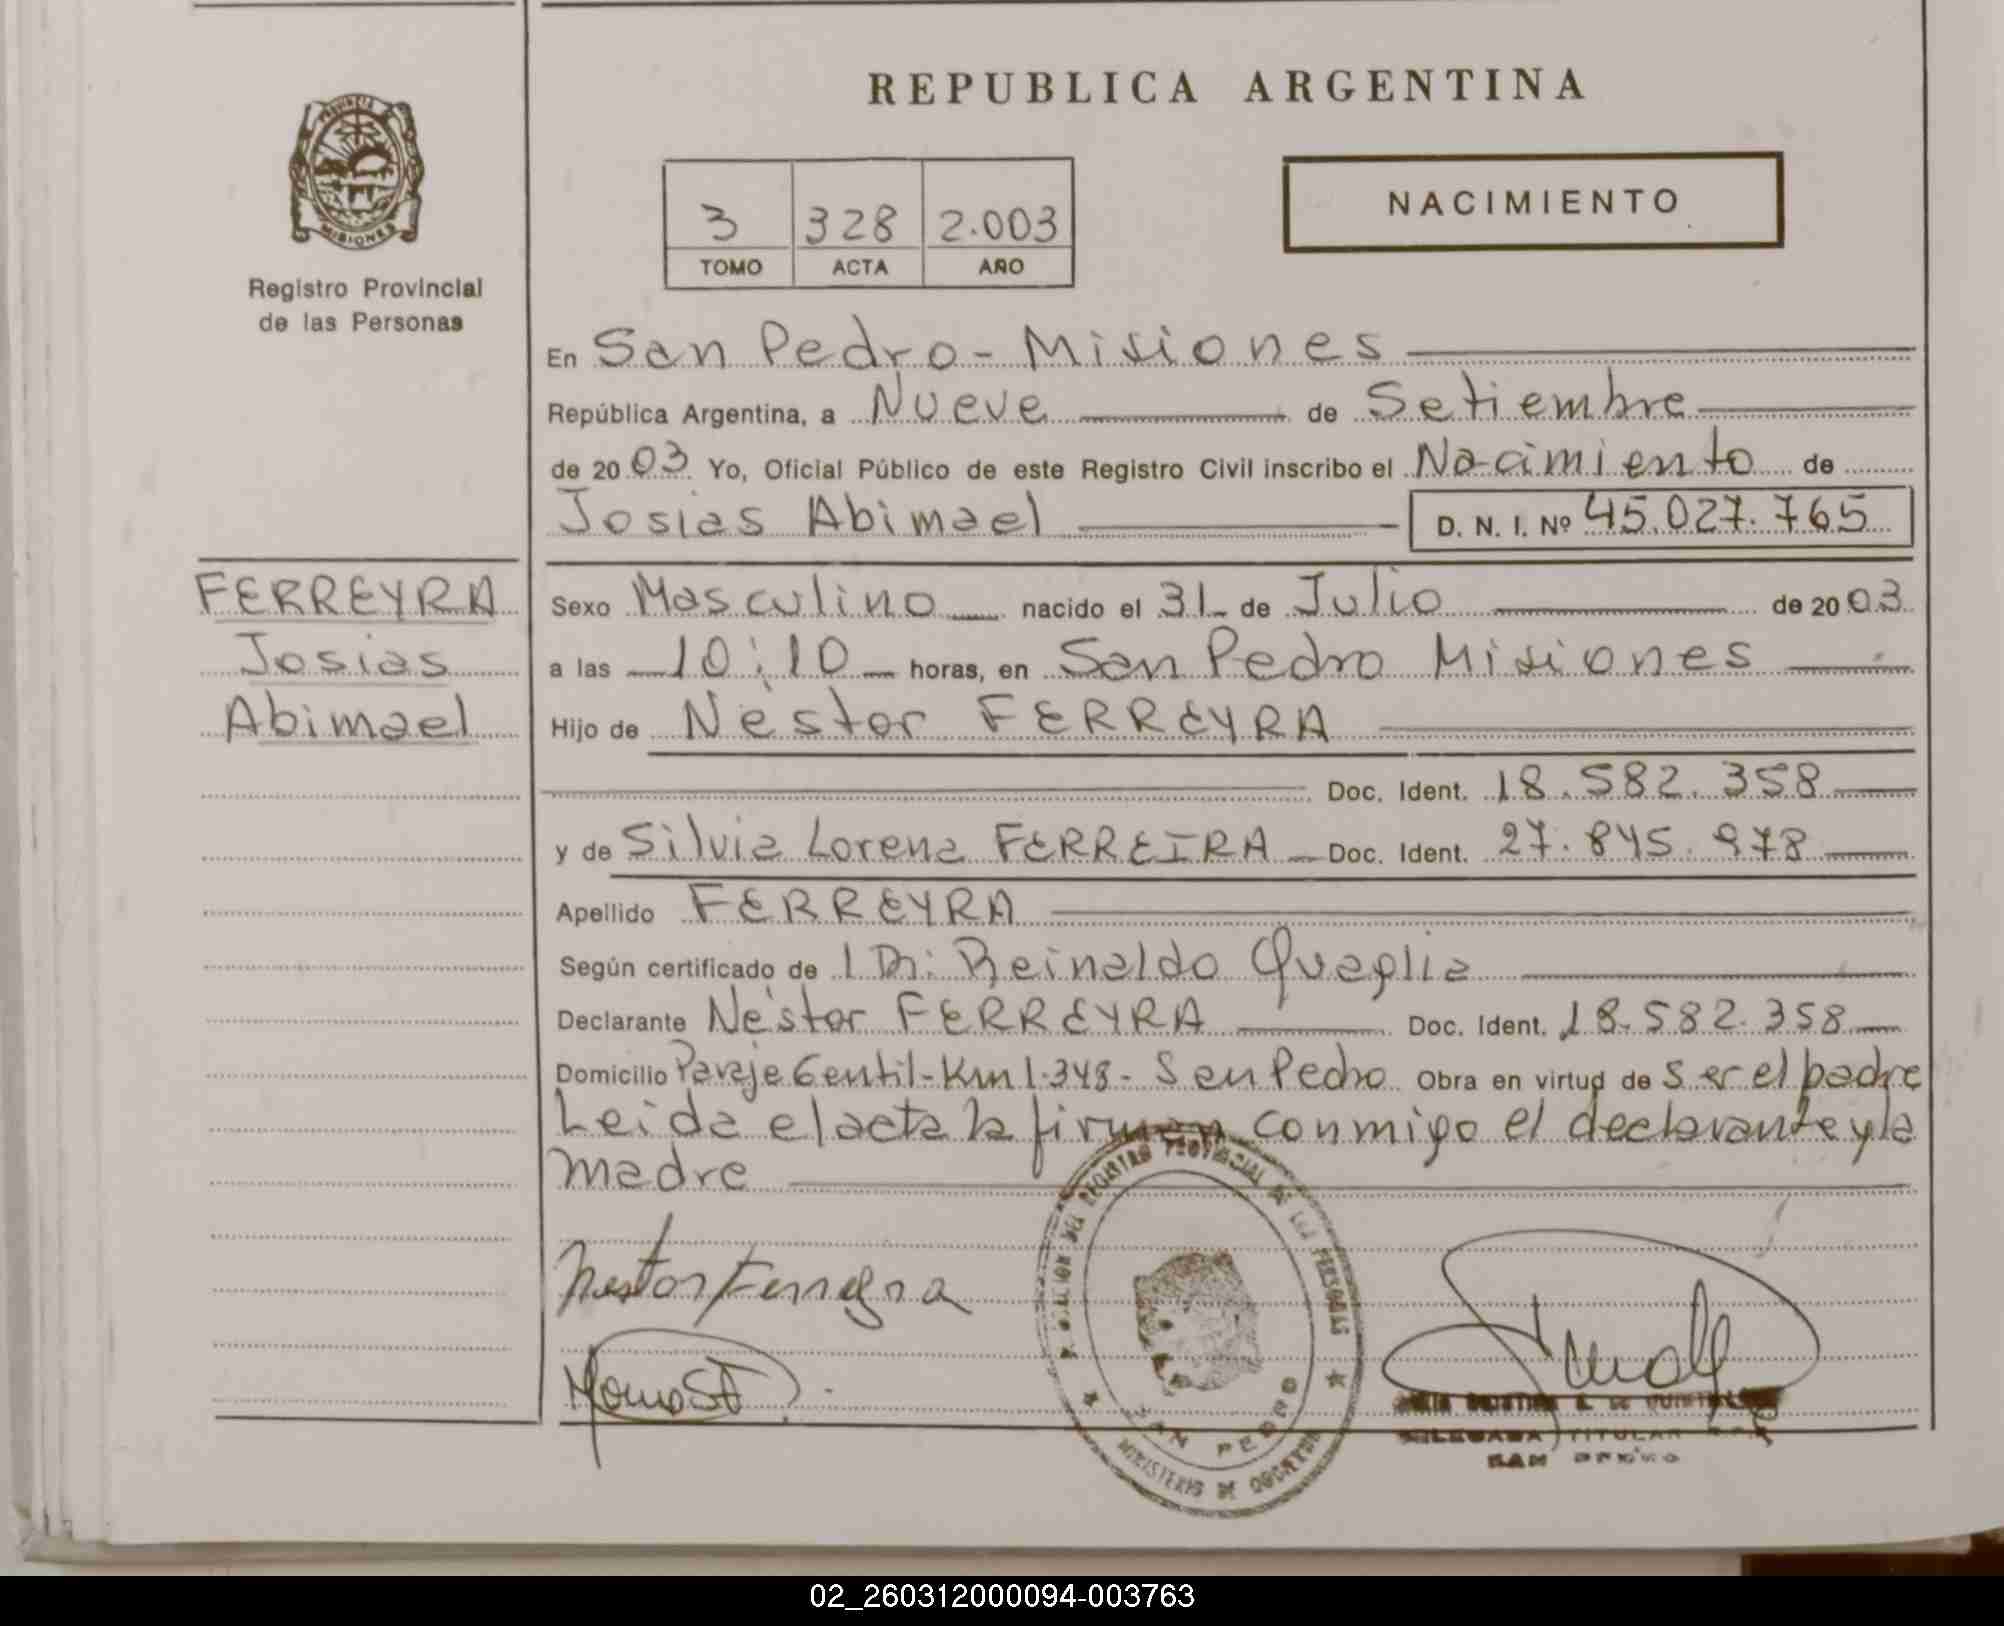 REPUBLICA ARGENTINA
PROVINCIA
MISIONES
Registro Provincial
de las Personas
3 328 2.003
TOMO ACTA AÑO
NACIMIENTO
En San Pedro - Misiones
República Argentina, a Nueve de Setiembre
de 2003 Yo, Oficial Público de este Registro Civil inscribo el Nacimiento de
Josias Abimael D. N. I. Nº 45.027.765
FERREYRA
Josias
Abimael
Sexo Masculino nacido el 31 de Julio de 2003
a las 10:10 horas, en San Pedro Misiones
Hijo de Néstor FERREYRA
Doc. Ident. 18.582.358
y de Silvia Lorena FERREIRA Doc. Ident. 27.845.978
Apellido FERREYRA
Según certificado de l Dr: Reinaldo Quaglia
Declarante Néstor FERREYRA Doc. Ident. 18.582.358
Domicilio Paraje Gentil - Km 1.348 - San Pedro Obra en virtud de ser el padre
Leida el acta la firman conmigo el declarante y la
madre
Nestor Ferreyra
DEL REGISTRO PROVINCIAL DE LAS PERSONAS
SAN PEDRO
MINISTERIO DE GOBIERNO
DE
TITULAR
SAN PEDRO
02_260312000094-003763